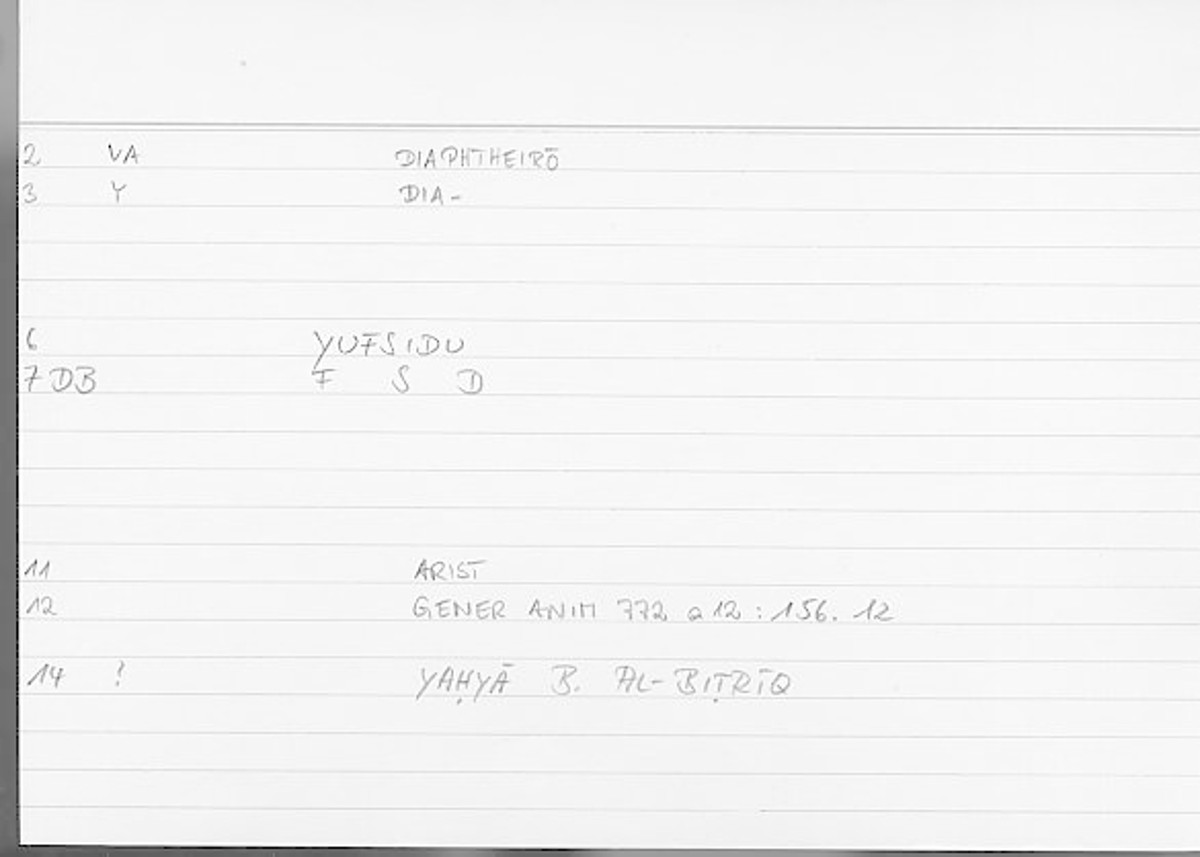 2 VA DIAPHTHEIRŌ
3 Y DIA-
6 YUFSIDU
7 DB F S D
11 ARIST
12 GENER ANIM 772 a 12 : 156. 12
14 ? YAḤYĀ B. AL-BIṬRĪQ